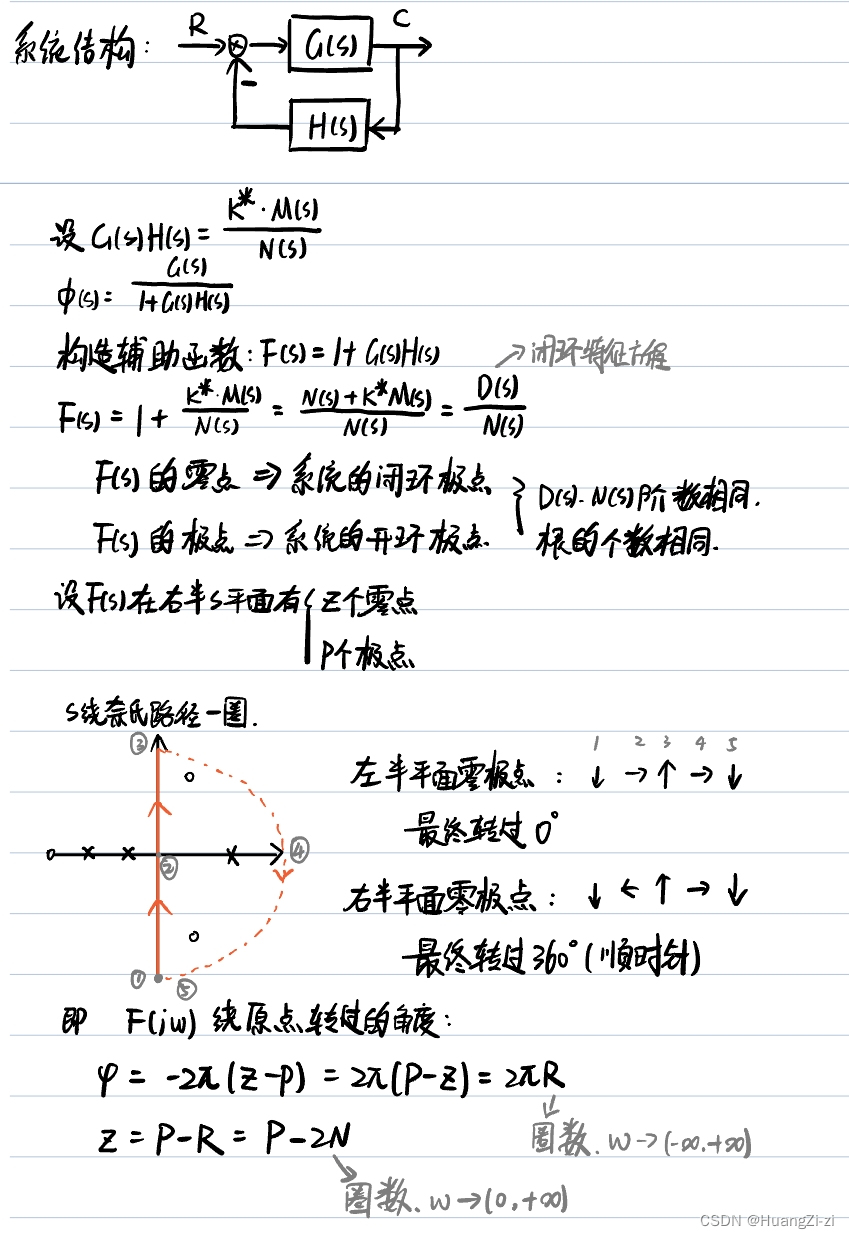 系统结构: R × G(s) C
−
H(s)
设 G(s)H(s) = K*·M(s) / N(s)
φ(s) = G(s) / 1+G(s)H(s)
构造辅助函数: F(s) = 1 + G(s)H(s) → 闭环特征方程
F(s) = 1 + K*·M(s) / N(s) = N(s)+K*M(s) / N(s) = D(s) / N(s)
F(s) 的零点 => 系统的闭环极点
F(s) 的极点 => 系统的开环极点
D(s). N(s)阶数相同.
根的个数相同.
设F(s)在右半s平面有{ Z个零点
P个极点
S绕奈氏路径一圈.
① ② ③ ④ ⑤
1 2 3 4 5
左半平面零极点 : ↓ → ↑ → ↓
最终转过 0°
右半平面零极点 : ↓ ← ↑ → ↓
最终转过 360° (顺时针)
即 F(jw) 绕原点转过的角度:
φ = -2π(Z-P) = 2π(P-Z) = 2πR
Z = P-R = P-2N
圈数. w→(-∞.+∞)
圈数. w→(0,+∞)
CSDN @HuangZi-zi